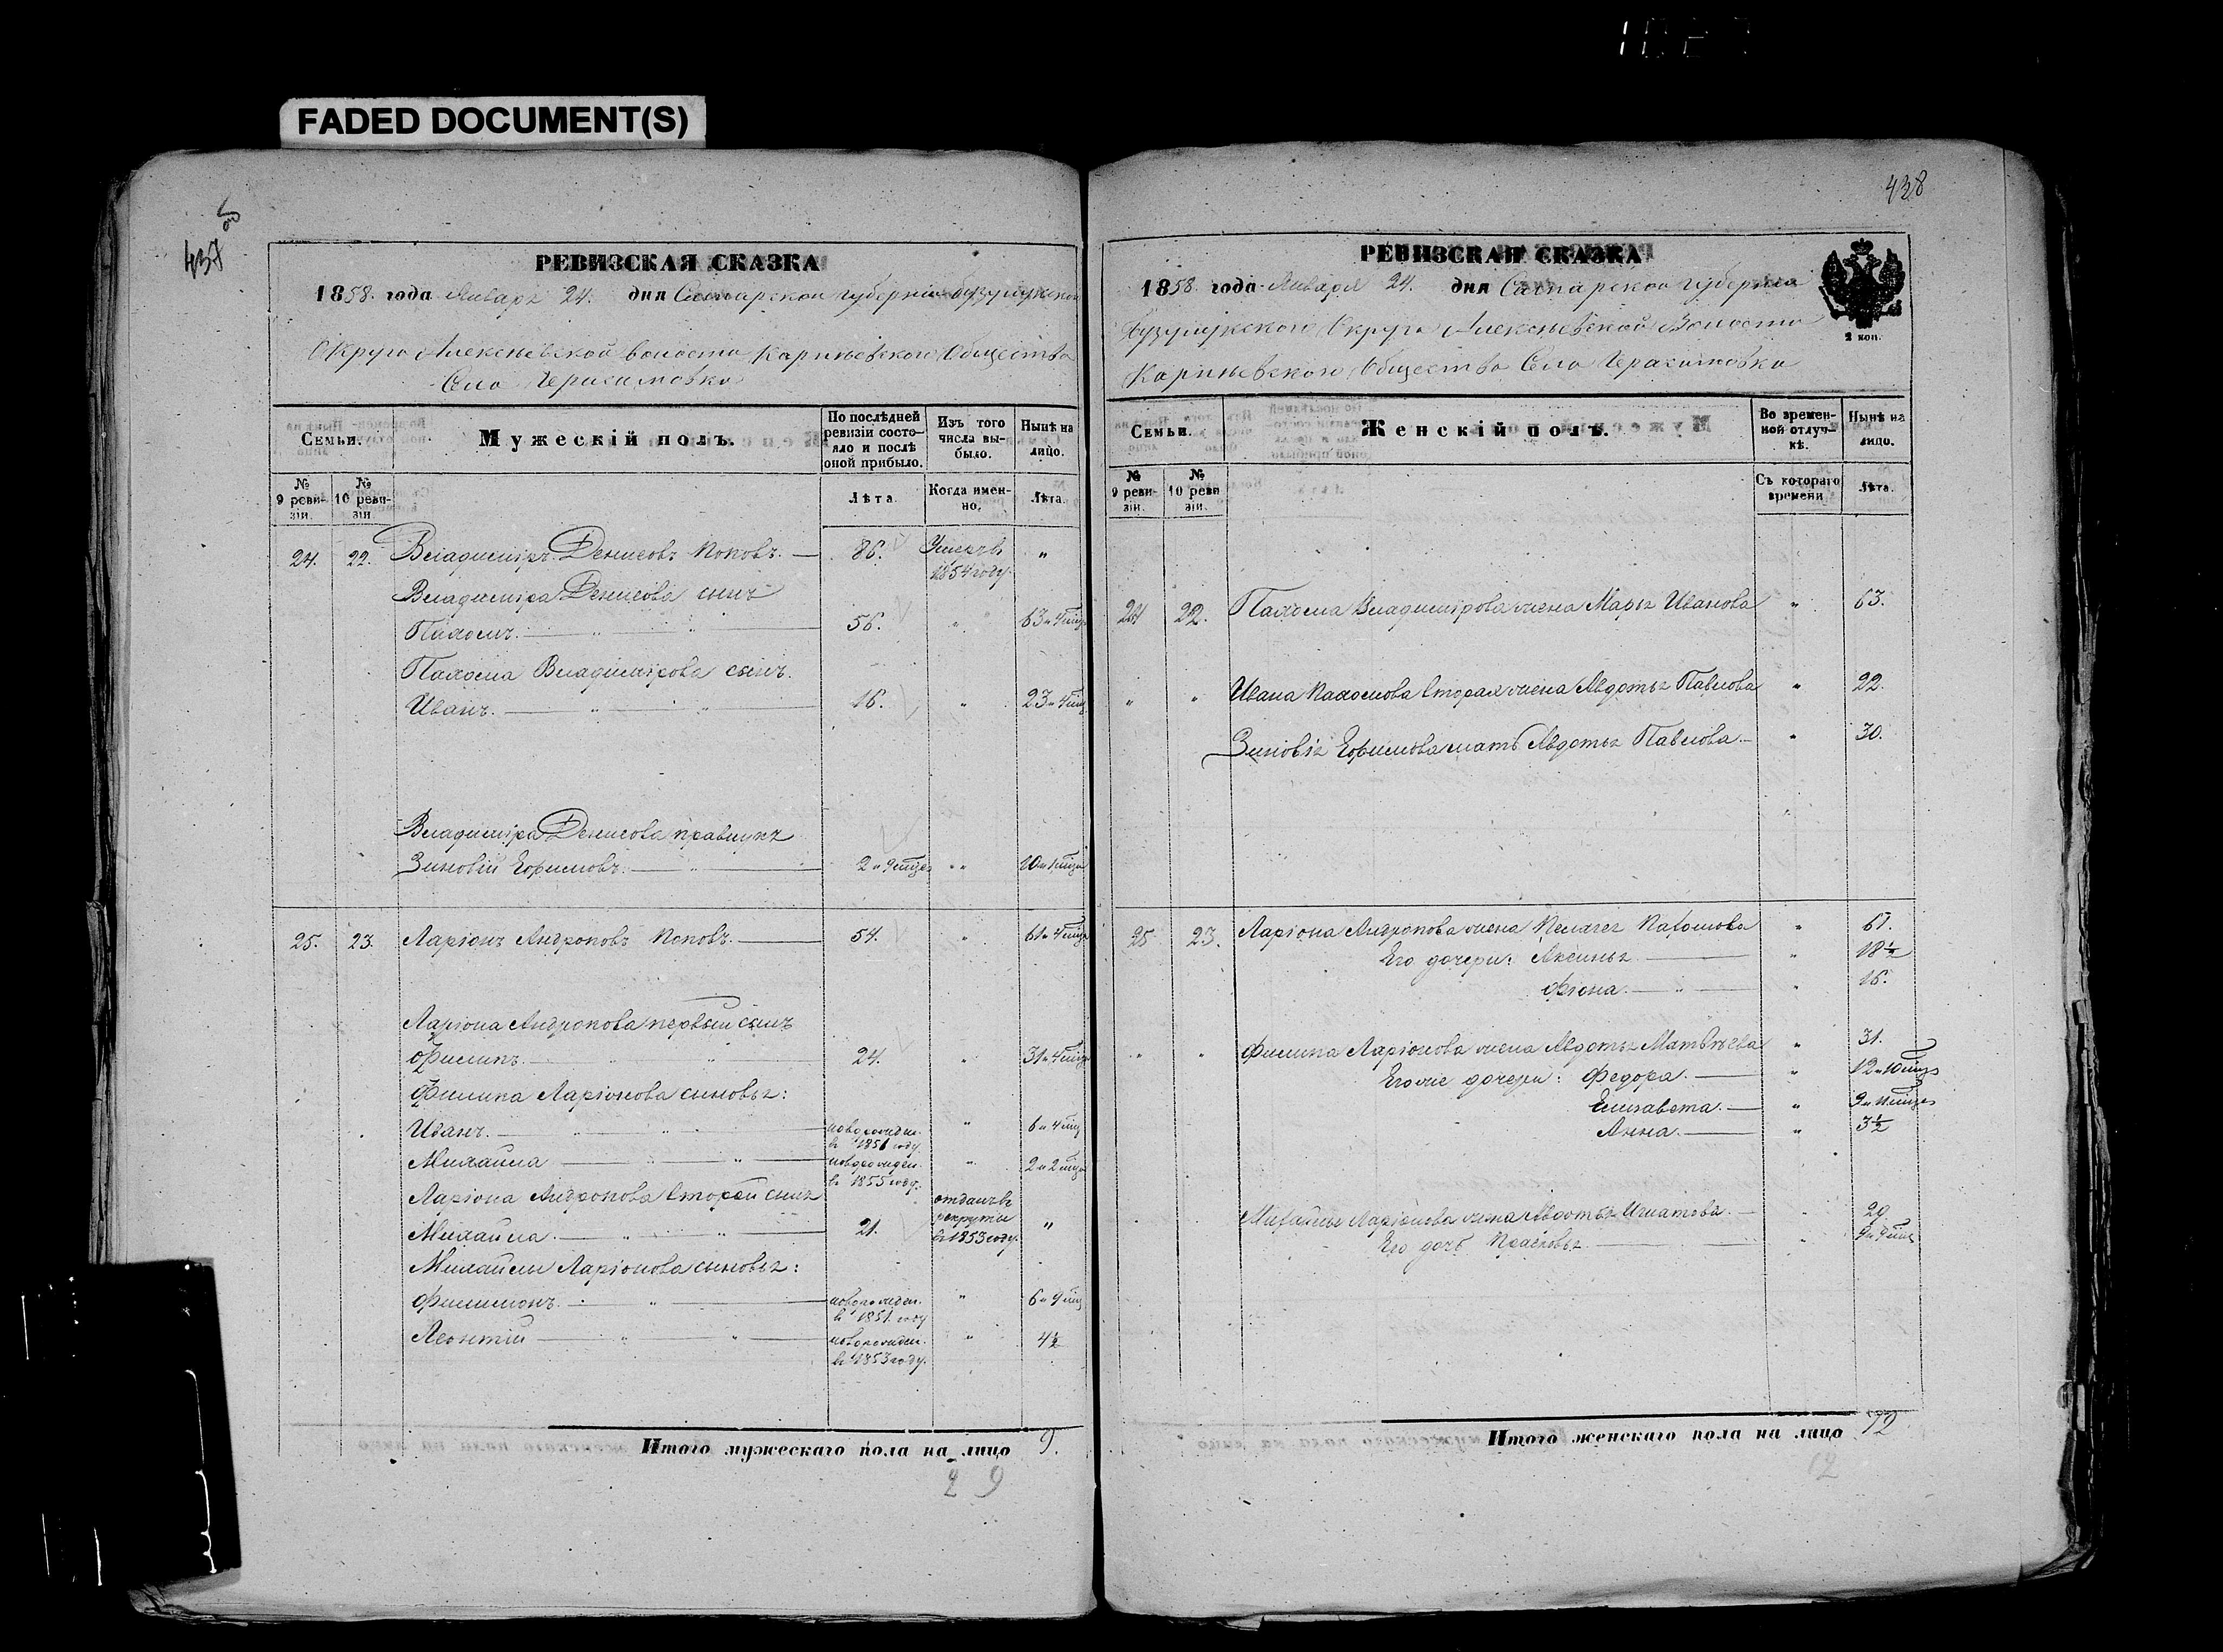 FADED DOCUMENT(S)
437
об
РЕВИЗСКАЯ СКАЗКА
1858. года Января 24. дня Самарской губернии Бузулукскаго
Округа Алексѣевской волости Каринѣевского Общества
Села Герасимовки
Семьи.
Мужескій полъ.
По послѣдней ревизіи состояло и послѣ оной прибыло.
Изъ того числа выбыло.
Нынѣ на лицо.
№ 9 ревизіи.
№ 10 ревизіи.
Лѣта.
Когда именно.
Лѣта.
24. 22. Владиміръ Денисовъ Поповъ. 86. Умеръ въ 1854 году. "
Владиміра Денисова сынъ
Пахомъ. " " 56. " 63 и 4 мѣц
Пахома Владимірова сынъ.
Иванъ. " " 16. " 23 и 4 мѣц
Владиміра Денисова правнукъ
Зиновій Ефимовъ. " 2 и 9 мѣцев " 10 и 1 мѣцъ
25. 23. Ларіонъ Андроповъ Поповъ. 54. " 61 и 4 мѣц
Ларіона Андропова первый сынъ
Филипъ. " " 24. " 31 и 4 мѣц
Филипа Ларіонова сыновья:
Иванъ. " " новорожден. въ 1851 году " 6 и 4 мѣц
Михаила " " новорожден. въ 1855 году. " 2 и 2 мѣц
Ларіона Андропова второй сынъ
Михаила. " " 21. отданъ въ рекруты въ 1853 году. "
Михайлы Ларіонова сыновья:
Филимонъ. " новорожден. въ 1851 году " 6 и 9 мѣц
Леонтій " " новорожден. въ 1853 году. " 4½
Итого мужескаго пола на лицо 9.
9
438
РЕВИЗСКАЯ СКАЗКА
1858. года Января 24. дня Самарской губерніи
2 коп.
Бузулукского Округа Алексѣевской Волости
Каринѣевского Общества Села Герасимовки
Семьи.
Женскій полъ.
Во временной отлучкѣ.
Нынѣ на лицо.
№ 9 ревизіи.
№ 10 ревизіи.
Съ котораго времени
Лѣта.
24 22. Пахома Владимірова жена Марья Иванова " 63.
" " Ивана Пахомова вторая жена Авдотья Павлова " 22.
Зиновія Ефимова мать Авдотья Павлова " 30.
25 23. Ларіона Андропова жена Пелагея Пахомова " 61.
Его дочери: Аксинья " 18½
Фіона. " " 16.
" " Филипа Ларіонова жена Авдотья Матвѣева " 31.
Его же дочери: Федора. " 12 и 10 мѣцъ
Елизавета. "
Анна. " 3½
Михайлы Ларіонова жена Авдотья Игнатова. 29
Его дочь Прасковья
Итого женскаго пола на лицо 12
12